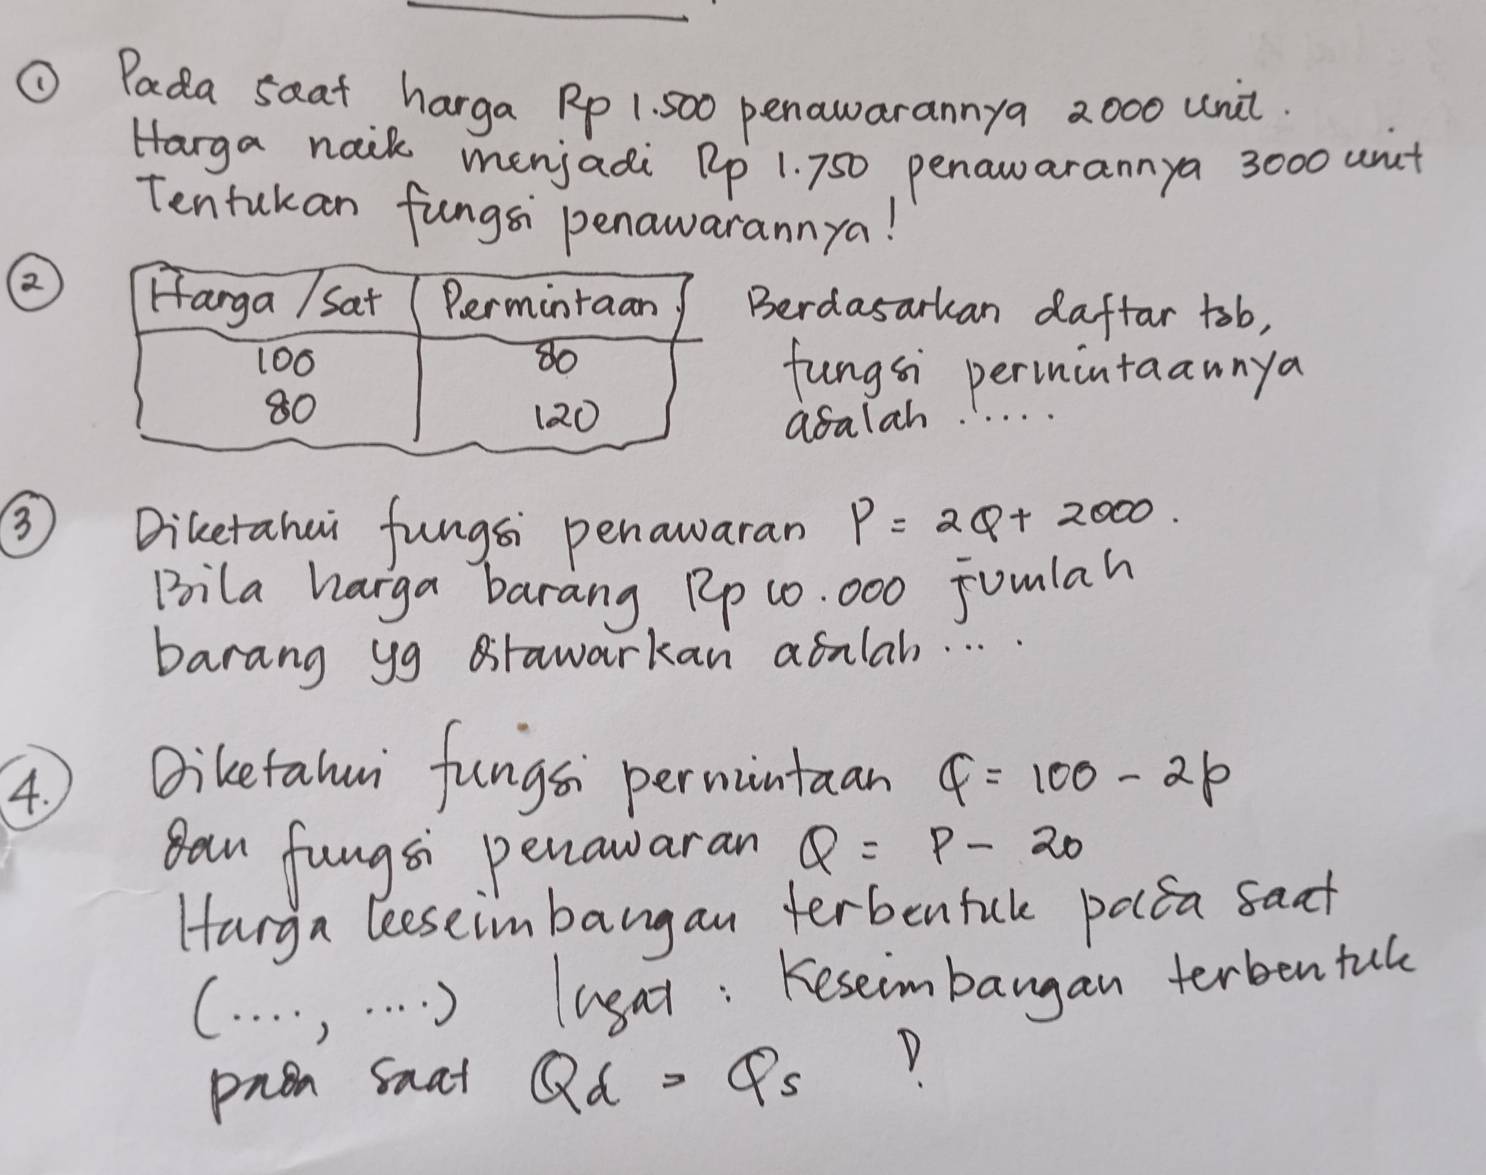 ① Pada saat harga Rp 1.500 penawarannya 2000 unit.
Harga naik menjadi Rp 1.750 penawarannya 3000 unit
Tentukan fungsi penawarannya!
② Harga / Sat Permintaan Berdasarkan daftar tsb,
100 80 fungsi permintaannya
80 120 adalah .....
③ Diketahui fungsi penawaran P = 2Q + 2000.
Bila harga barang Rp 10.000 jumlah
barang yg ditawarkan adalah ....
4. Diketahui fungsi permintaan Q = 100 - 2p
dan fungsi penawaran Q = P - 20
Harga keseimbangan terbentuk pada saat
(...., ....) Ingat : Keseimbangan terbentuk
pada saat Qd = Qs !